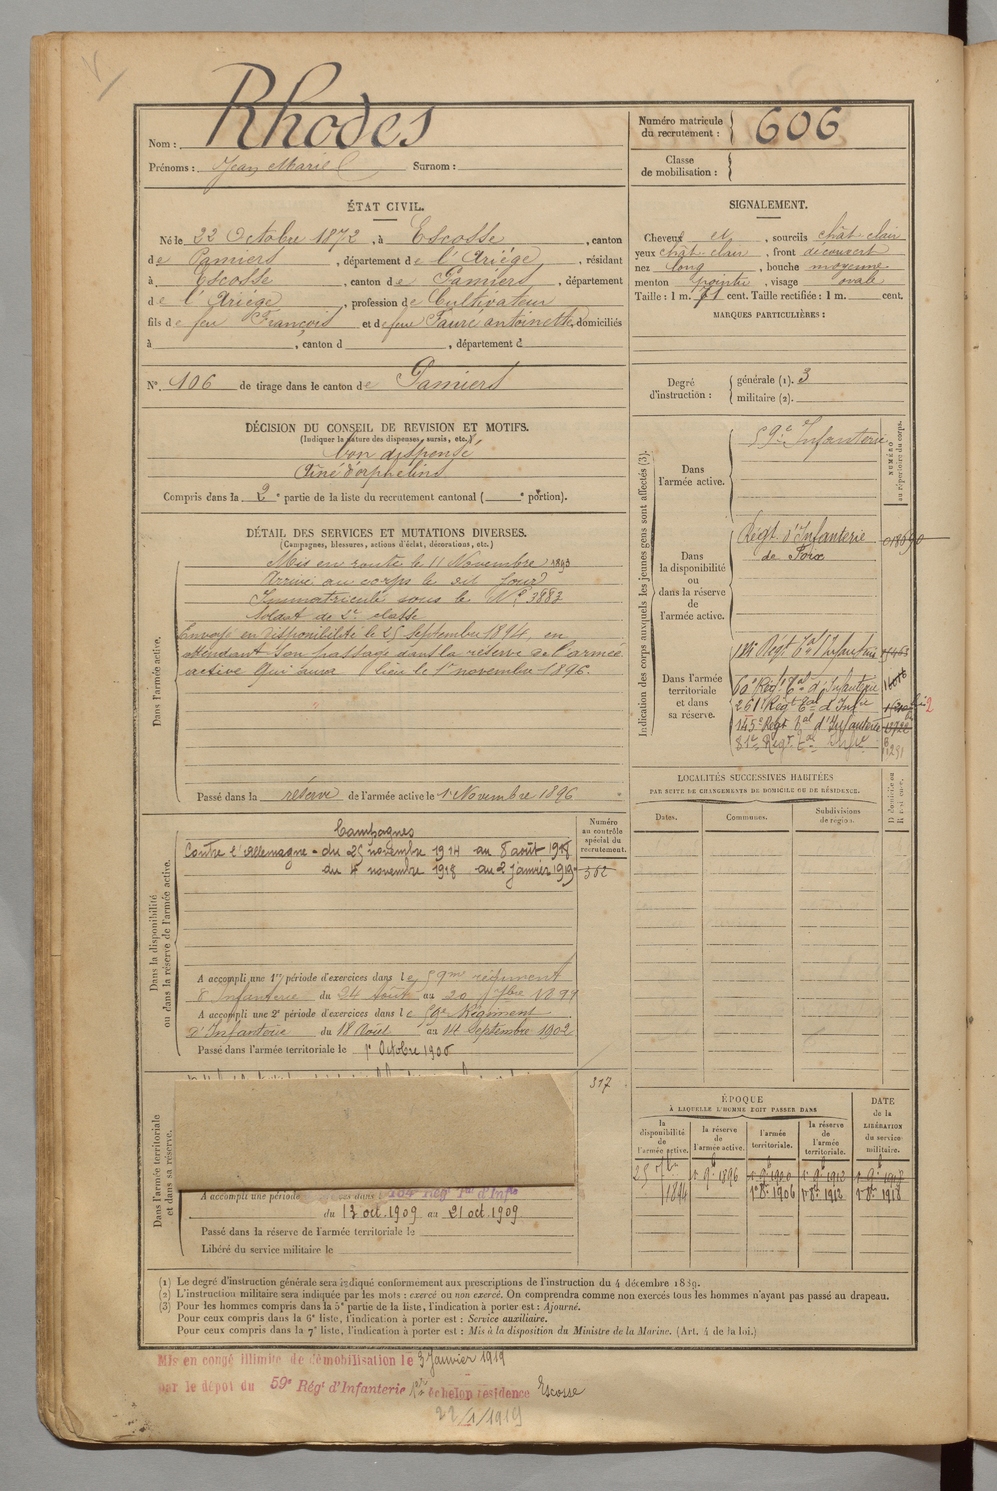 Rhodes
Nom :
Prénoms : Jean Marie Surnom :
Numéro matricule du recrutement : 606
Classe de mobilisation :
ÉTAT CIVIL.
Né le 22 Octobre 1872, à Escosse, canton
de Pamiers, département de l'Ariége, résidant
à Escosse, canton de Pamiers, département
de l'Ariége, profession de Cultivateur
fils de feu François et de feue Fauré antoinette, domiciliés
à , canton d , département d
N° 106 de tirage dans le canton de Pamiers
DÉCISION DU CONSEIL DE REVISION ET MOTIFS.
(Indiquer la nature des dispenses, sursis, etc.)
bon dispensé
Ainé d'orphelins
Compris dans la 2e partie de la liste du recrutement cantonal ( e portion).
DÉTAIL DES SERVICES ET MUTATIONS DIVERSES.
(Campagnes, blessures, actions d'éclat, décorations, etc.)
Dans l'armée active.
Mis en route le 11 Novembre 1893
Arrivé au corps le dit jour
Immatriculé sous le N° 3883
Soldat de 2e classe
Envoyé en disponibilité le 25 septembre 1894, en
attendant son passage dans la réserve de l'armée
active qui aura lieu le 1er novembre 1896.
Passé dans la réserve de l'armée active le 1er Novembre 1896
Numéro au contrôle spécial du recrutement.
Dans la disponibilité ou dans la réserve de l'armée active.
Campagnes
Contre l'Allemagne - du 25 novembre 1914 au 8 août 1918
du 4 novembre 1918 au 2 Janvier 1919
562
A accompli une 1re période d'exercices dans le 59me régiment
d'Infanterie du 24 août au 20 7bre 1899
A accompli une 2e période d'exercices dans le 59e Régiment
d'Infanterie du 18 Août au 14 Septembre 1902
Passé dans l'armée territoriale le 1er Octobre 1906
317
Dans l'armée territoriale et dans sa réserve.
A accompli une période
du 13 oct. 1909 au 21 oct. 1909
Passé dans la réserve de l'armée territoriale le
Libéré du service militaire le
SIGNALEMENT.
Cheveux et, sourcils chât-clair
yeux chât-clair, front découvert
nez long, bouche moyenne
menton pointu, visage ovale
Taille : 1 m. 71 cent. Taille rectifiée : 1 m. cent.
MARQUES PARTICULIÈRES :
Degré d'instruction :
générale (1). 3
militaire (2).
Indication des corps auxquels les jeunes gens sont affectés (3).
NUMÉRO au répertoire du corps.
Dans l'armée active.
59e d'Infanterie
Dans la disponibilité ou dans la réserve de l'armée active.
Régt d'Infanterie
de Foix
Dans l'armée territoriale et dans sa réserve.
134 Régt Tal d'Infanterie
60e Régt Tal d'Infanterie
261 Régt Tal d'Infie
145e Régt Tal d'Infanterie
81e Régt Tal Infie
1291
LOCALITÉS SUCCESSIVES HABITÉES
PAR SUITE DE CHANGEMENTS DE DOMICILE OU DE RÉSIDENCE.
Dates.
Communes.
Subdivisions de région.
D domicile ou R résidence.
ÉPOQUE
À LAQUELLE L'HOMME DOIT PASSER DANS
DATE de la LIBÉRATION du service militaire.
la disponibilité de l'armée active.
la réserve de l'armée active.
l'armée territoriale.
la réserve de l'armée territoriale.
25 7bre 1894
1er 9b 1896
1er 8bre 1906
1er 8bre 1912
1er 8bre 1918
(1) Le degré d'instruction générale sera indiqué conformement aux prescriptions de l'instruction du 4 décembre 1889.
(2) L'instruction militaire sera indiquée par les mots : exercé ou non exercé. On comprendra comme non exercés tous les hommes n'ayant pas passé au drapeau.
(3) Pour les hommes compris dans la 5e partie de la liste, l'indication à porter est : Ajourné.
Pour ceux compris dans la 6e liste, l'indication à porter est : Service auxiliaire.
Pour ceux compris dans la 7e liste, l'indication à porter est : Mis à la disposition du Ministre de la Marine. (Art. 4 de la loi.)
Mis en congé illimité de démobilisation le 3 Janvier 1919
par le dépôt du 59e Régt d'Infanterie échelon résidence Escosse
22/1/1919